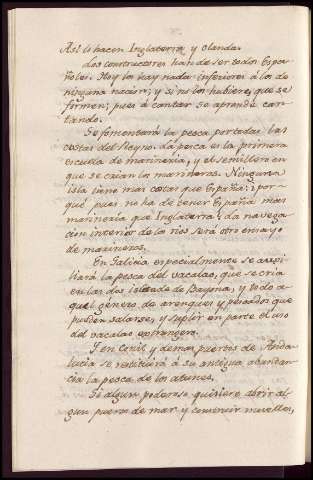 Asi lo hacen Inglaterra y olanda.
Los constructores han de ser todos Espa-
ñoles. Hoy los hay nada inferiores á los de
ninguna nacion; y si no los hubiere, que se
formen; pues á cantar se aprende can-
tando.
Se fomentará la pesca por todas las
costas del Reyno. La pesca es la primera
escuela de marineria, y el semillero en
que se crian los marineros. Ninguna
isla tiene mas costas que España: ¿por-
qué pues no ha de tener España mas
marineria que Inglaterra? La navega-
cion interior de los rios será otro ensayo
de marineros.
En Galicia especialmente se auxi-
liará la pesca del vacalao, que se cria
en las dos islas de Bayona, y todo a-
quel género de arenques y pescados que
pueden salarse, y suplir en parte el uso
del vacalao extrangero.
Y en Conil y demas puertos de Anda-
lucia se restituirá á su antigua abundan-
cia la pesca de los atunes.
Si algun poderoso quisiere abrir al-
gun puerto de mar y construir muelles,